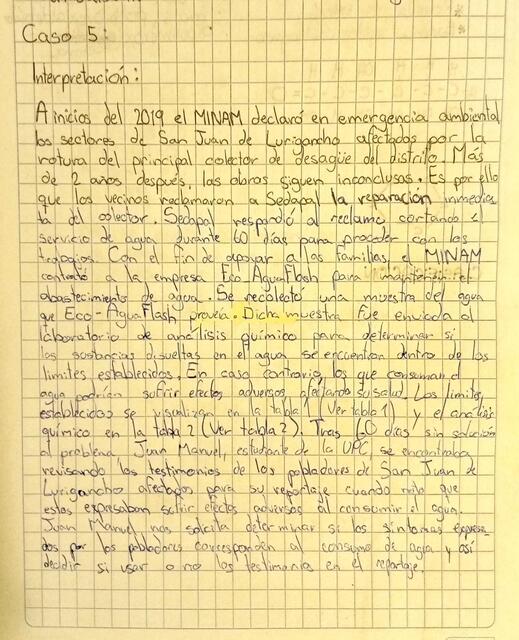 Caso 5:
Interpretación:
A inicios del 2019 el MINAM declaró en emergencia ambiental
los sectores de San Juan de Lurigancho afectados por la
rotura del principal colector de desagüe del distrito. Más
de 2 años después, las obras siguen inconclusas. Es por ello
que los vecinos reclamaron a Sedapal la reparación inmedia
ta del colector. Sedapal respondió al reclamo cortando el
servicio de agua durante 60 días para proceder con los
trabajos. Con el fin de apoyar a las familias, el MINAM
contrató a la empresa Eco-AguaFlash para mantener el
abastecimiento de agua. Se recolectó una muestra del agua
que Eco-AguaFlash proveía. Dicha muestra fue enviada al
laboratorio de análisis químico para determinar si
las sustancias disueltas en el agua se encuentran dentro de los
límites establecidos. En caso contrario, los que consuman el
agua podrían sufrir efectos adversos afectando su salud. Los límites
establecidos se visualizan en la tabla 1 (Ver tabla 1) y el análisis
químico en la tabla 2 (Ver tabla 2). Tras 60 días sin solución
al problema, Juan Manuel, estudiante de la UPC, se encontraba
revisando los testimonios de los pobladores de San Juan de
Lurigancho afectados para su reportaje cuando notó que
estos expresaban sufrir efectos adversos al consumir el agua.
Juan Manuel nos solicita determinar si los síntomas expresa
dos por los pobladores corresponden al consumo de agua y así
decidir si usar o no los testimonios en el reportaje.